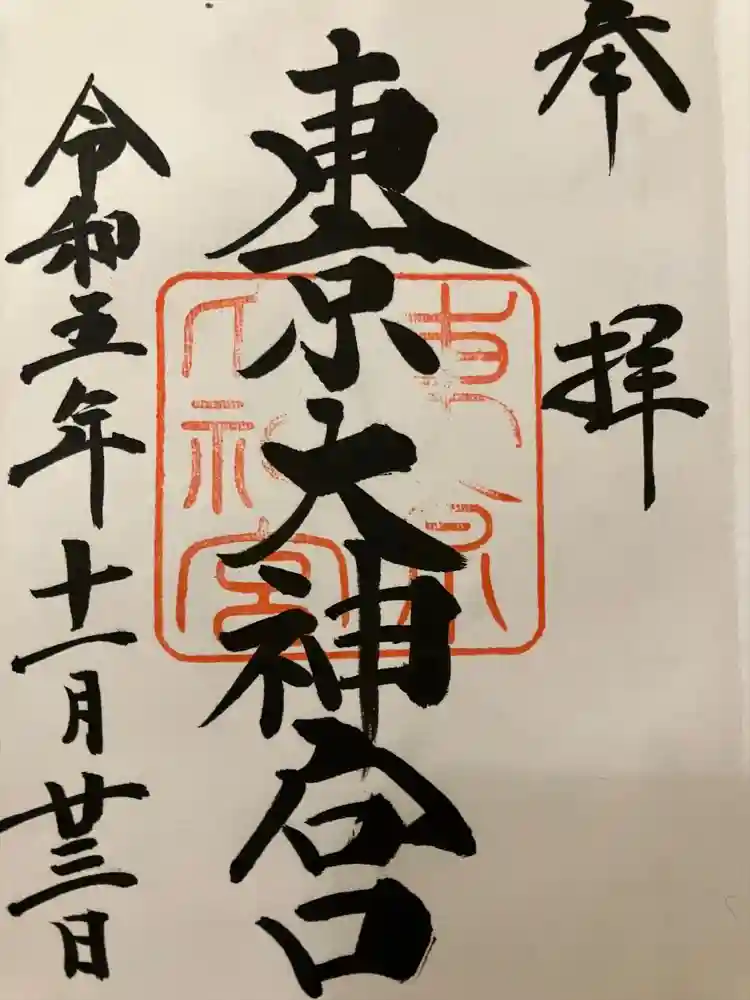 奉拝
東京大神宮
令和五年十一月廿三日
東京
大神宮